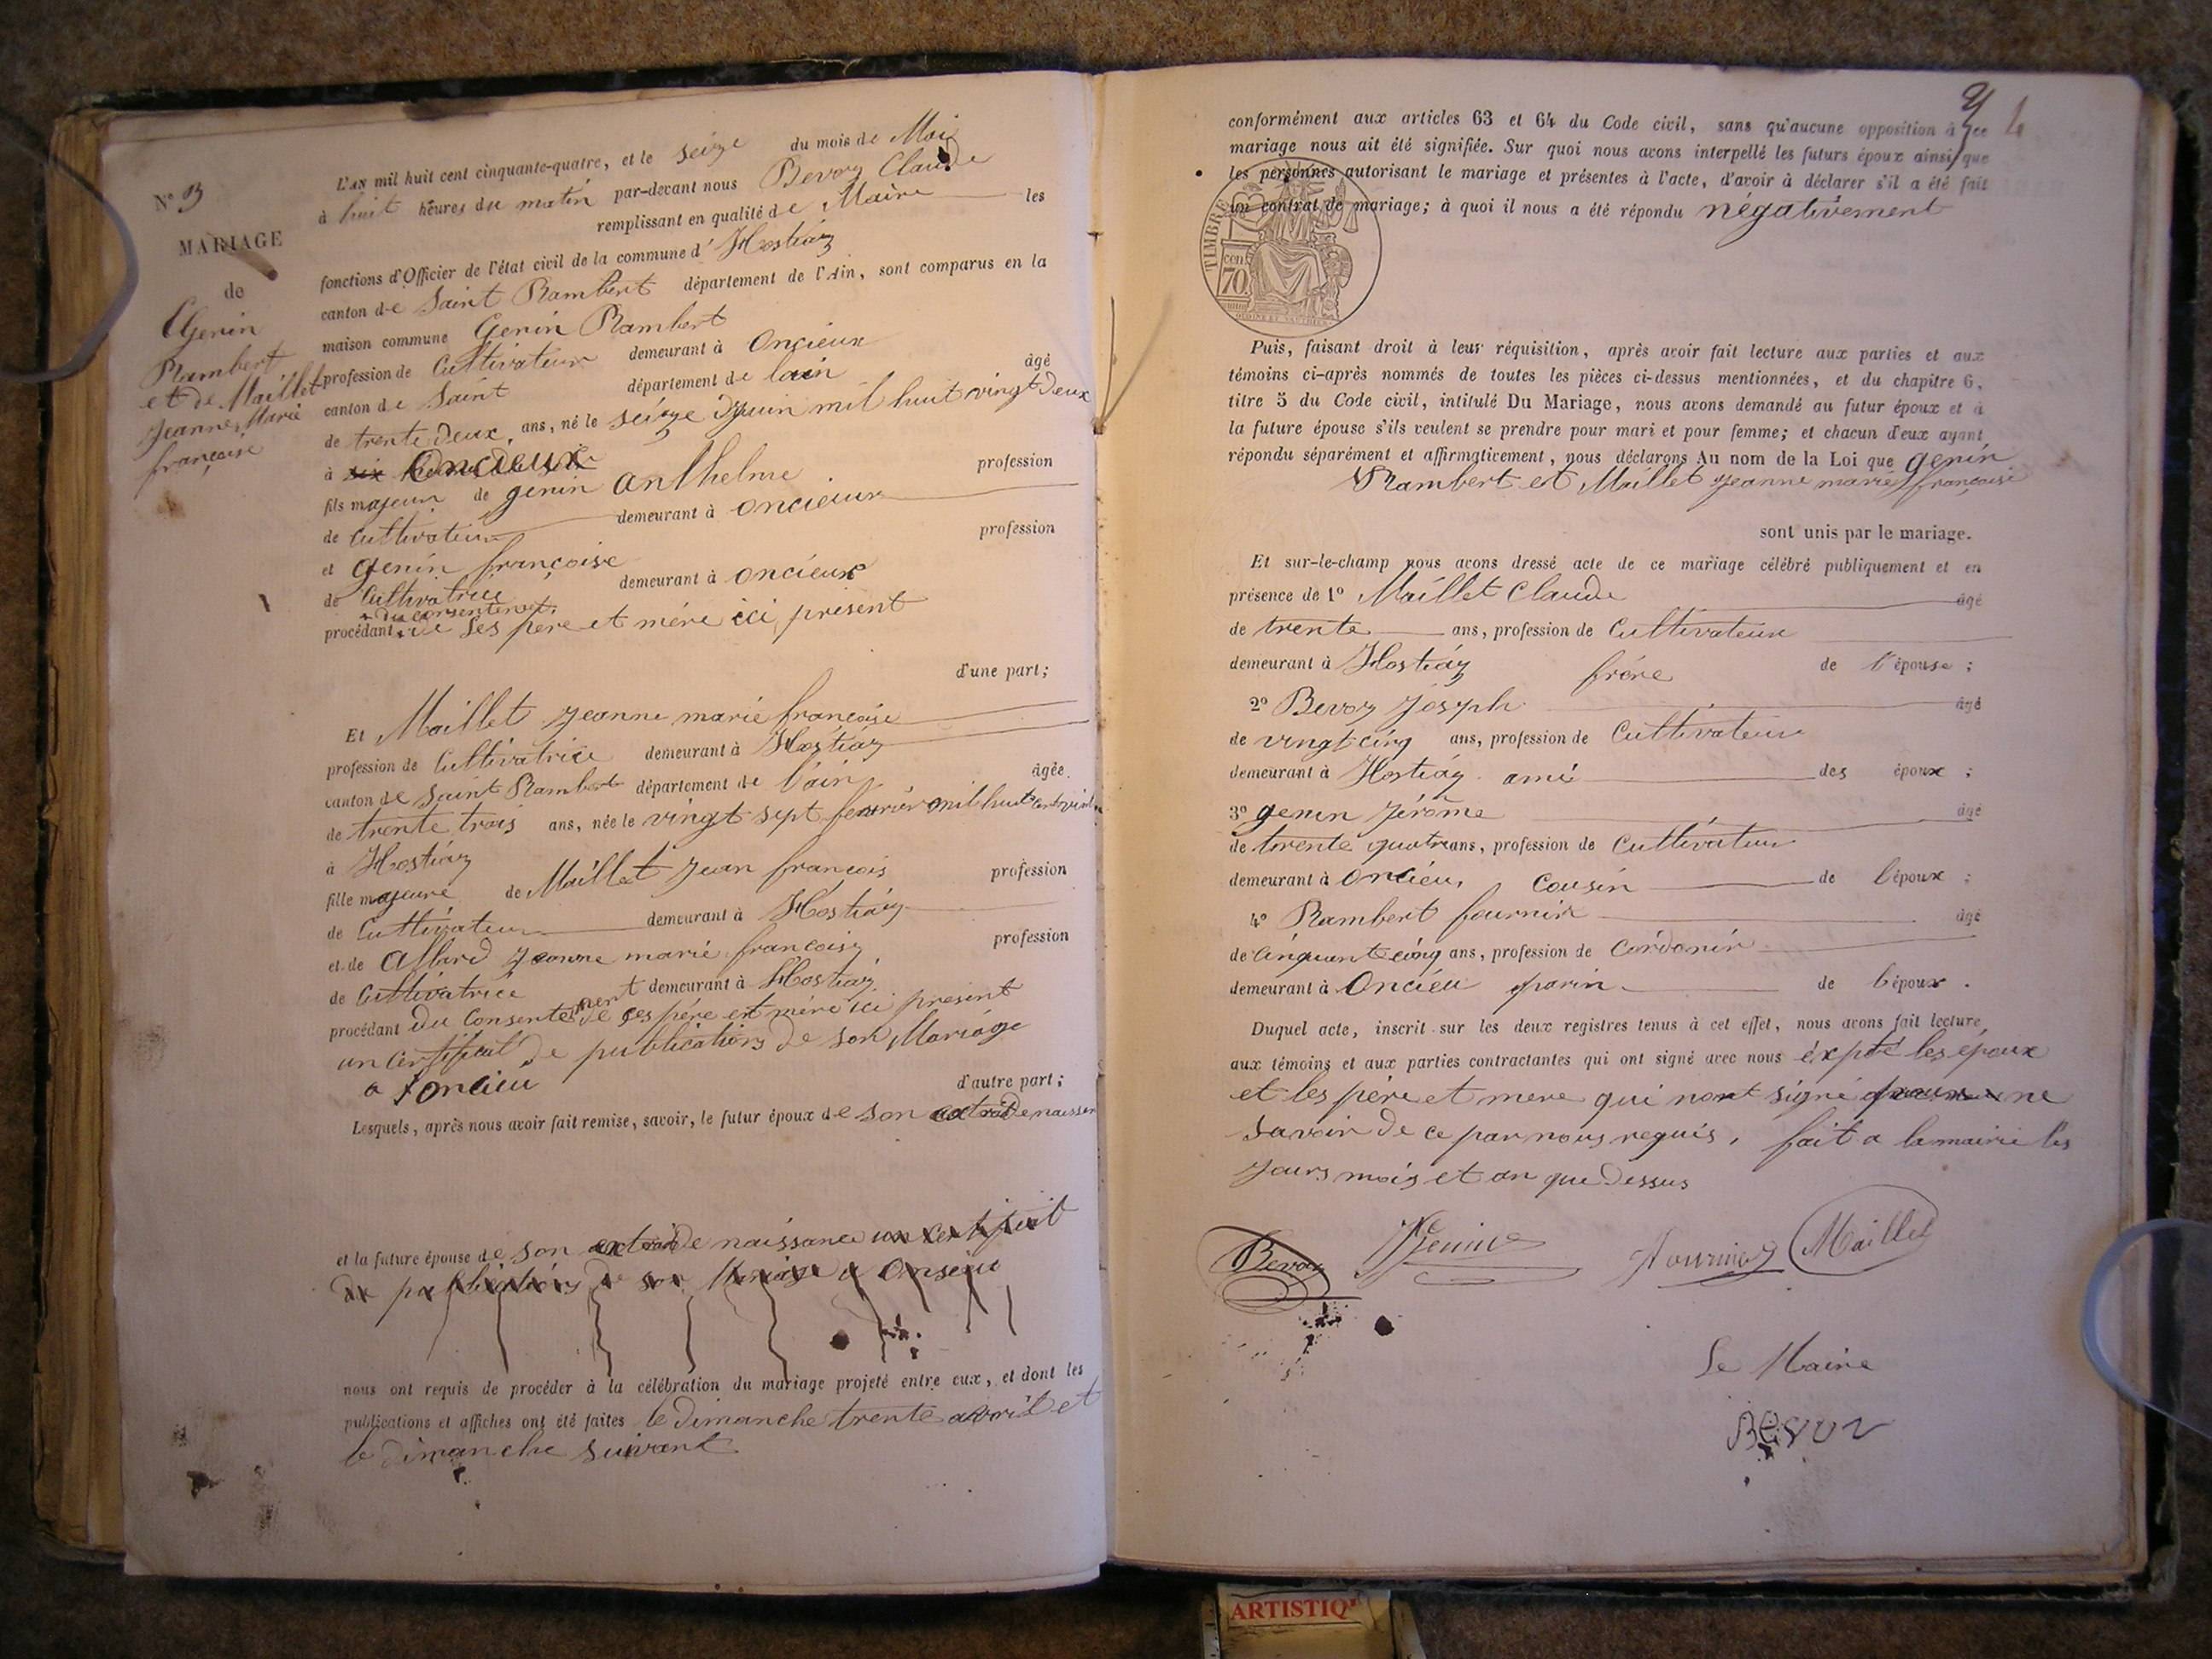 N° 3
MARIAGE
de
Genin
Rambert
et de Maillet
Jeanne Marie
françoise
L'AN mil huit cent cinquante-quatre, et le seize du mois de Mai
à huit heures du matin par-devant nous Bevoz Claude
remplissant en qualité de Maire les
fonctions d'Officier de l'état civil de la commune d' Hostiaz
canton de Saint Rambert département de l'Ain, sont comparus en la
maison commune Genin Rambert
profession de Cultivateur demeurant à Oncieux
canton de Saint département de lain âgé
de trente deux, ans, né le seize Juin mil huit vingt deux
à six Oncieux
fils majeur de genin anthelme profession
de Cultivateur demeurant à oncieux
et genin françoise profession
de Cultivatrice demeurant à oncieux
du consentement
procédant de Ses père et mére ici présent
d'une part;
Et Maillet Jeanne marie francoise
profession de Cultivatrice demeurant à Hostiaz
canton de Saint Rambert département de l'ain âgée
de trente trois ans, née le vingt sept fevrier mil huit cent vint
à Hostiaz
fille majeure de Maillet Jean francois profession
de Cultivateur demeurant à Hostiaz
et de Allard Jeanne marie francoise profession
de Cultivatrice demeurant à Hostiaz
procédant du Consentement de ses pére et mére ici present
un certificat de publications de son Mariage
a oncieu
d'autre part;
Lesquels, après nous avoir fait remise, savoir, le futur époux de son extrait de naissan
et la future épouse de son extrait de naissance un certificat
de publications de son Mariage a Onsieu
nous ont requis de procéder à la célébration du mariage projeté entre eux, et dont les
publications et affiches ont été faites le dimanche trente avril et
le dimanche suivant
4
conformément aux articles 63 et 64 du Code civil, sans qu'aucune opposition à ce
mariage nous ait été signifiée. Sur quoi nous avons interpellé les futurs époux ainsi que
les personnes autorisant le mariage et présentes à l'acte, d'avoir à déclarer s'il a été fait
un contrat de mariage; à quoi il nous a été répondu négativement
TIMBRE
cen.
70.
Puis, faisant droit à leur réquisition, après avoir fait lecture aux parties et aux
témoins ci-après nommés de toutes les pièces ci-dessus mentionnées, et du chapitre 6,
titre 5 du Code civil, intitulé Du Mariage, nous avons demandé au futur époux et à
la future épouse s'ils veulent se prendre pour mari et pour femme; et chacun d'eux ayant
répondu séparément et affirmativement, nous déclarons Au nom de la Loi que genin
Rambert et Maillet Jeanne marie françoise
sont unis par le mariage.
Et sur-le-champ nous avons dressé acte de ce mariage célébré publiquement et en
présence de 1° Maillet Claude âgé
de trente ans, profession de Cultivateur
demeurant à Hostiaz frére de l'épouse;
2° Bevoz Joseph âgé
de vingt cinq ans, profession de Cultivateur
demeurant à Hostiaz ami des époux;
3° genin Jérôme âgé
de trente quatre ans, profession de Cultivateur
demeurant à Oncieu, Cousin de l'époux;
4° Rambert fournier âgé
de Cinquante cinq ans, profession de Cordonir
demeurant à Oncieu parin de l'époux.
Duquel acte, inscrit sur les deux registres tenus à cet effet, nous avons fait lecture
aux témoins et aux parties contractantes qui ont signé avec nous éxpté les époux
et les pére et mere qui nont signé pour ne
savoir de ce par nous requis, fait a la mairie les
Jours mois et an que dessus
Bevoz Genin Fournier Maillet
Le Maire
Bevoz
ARTISTIQ